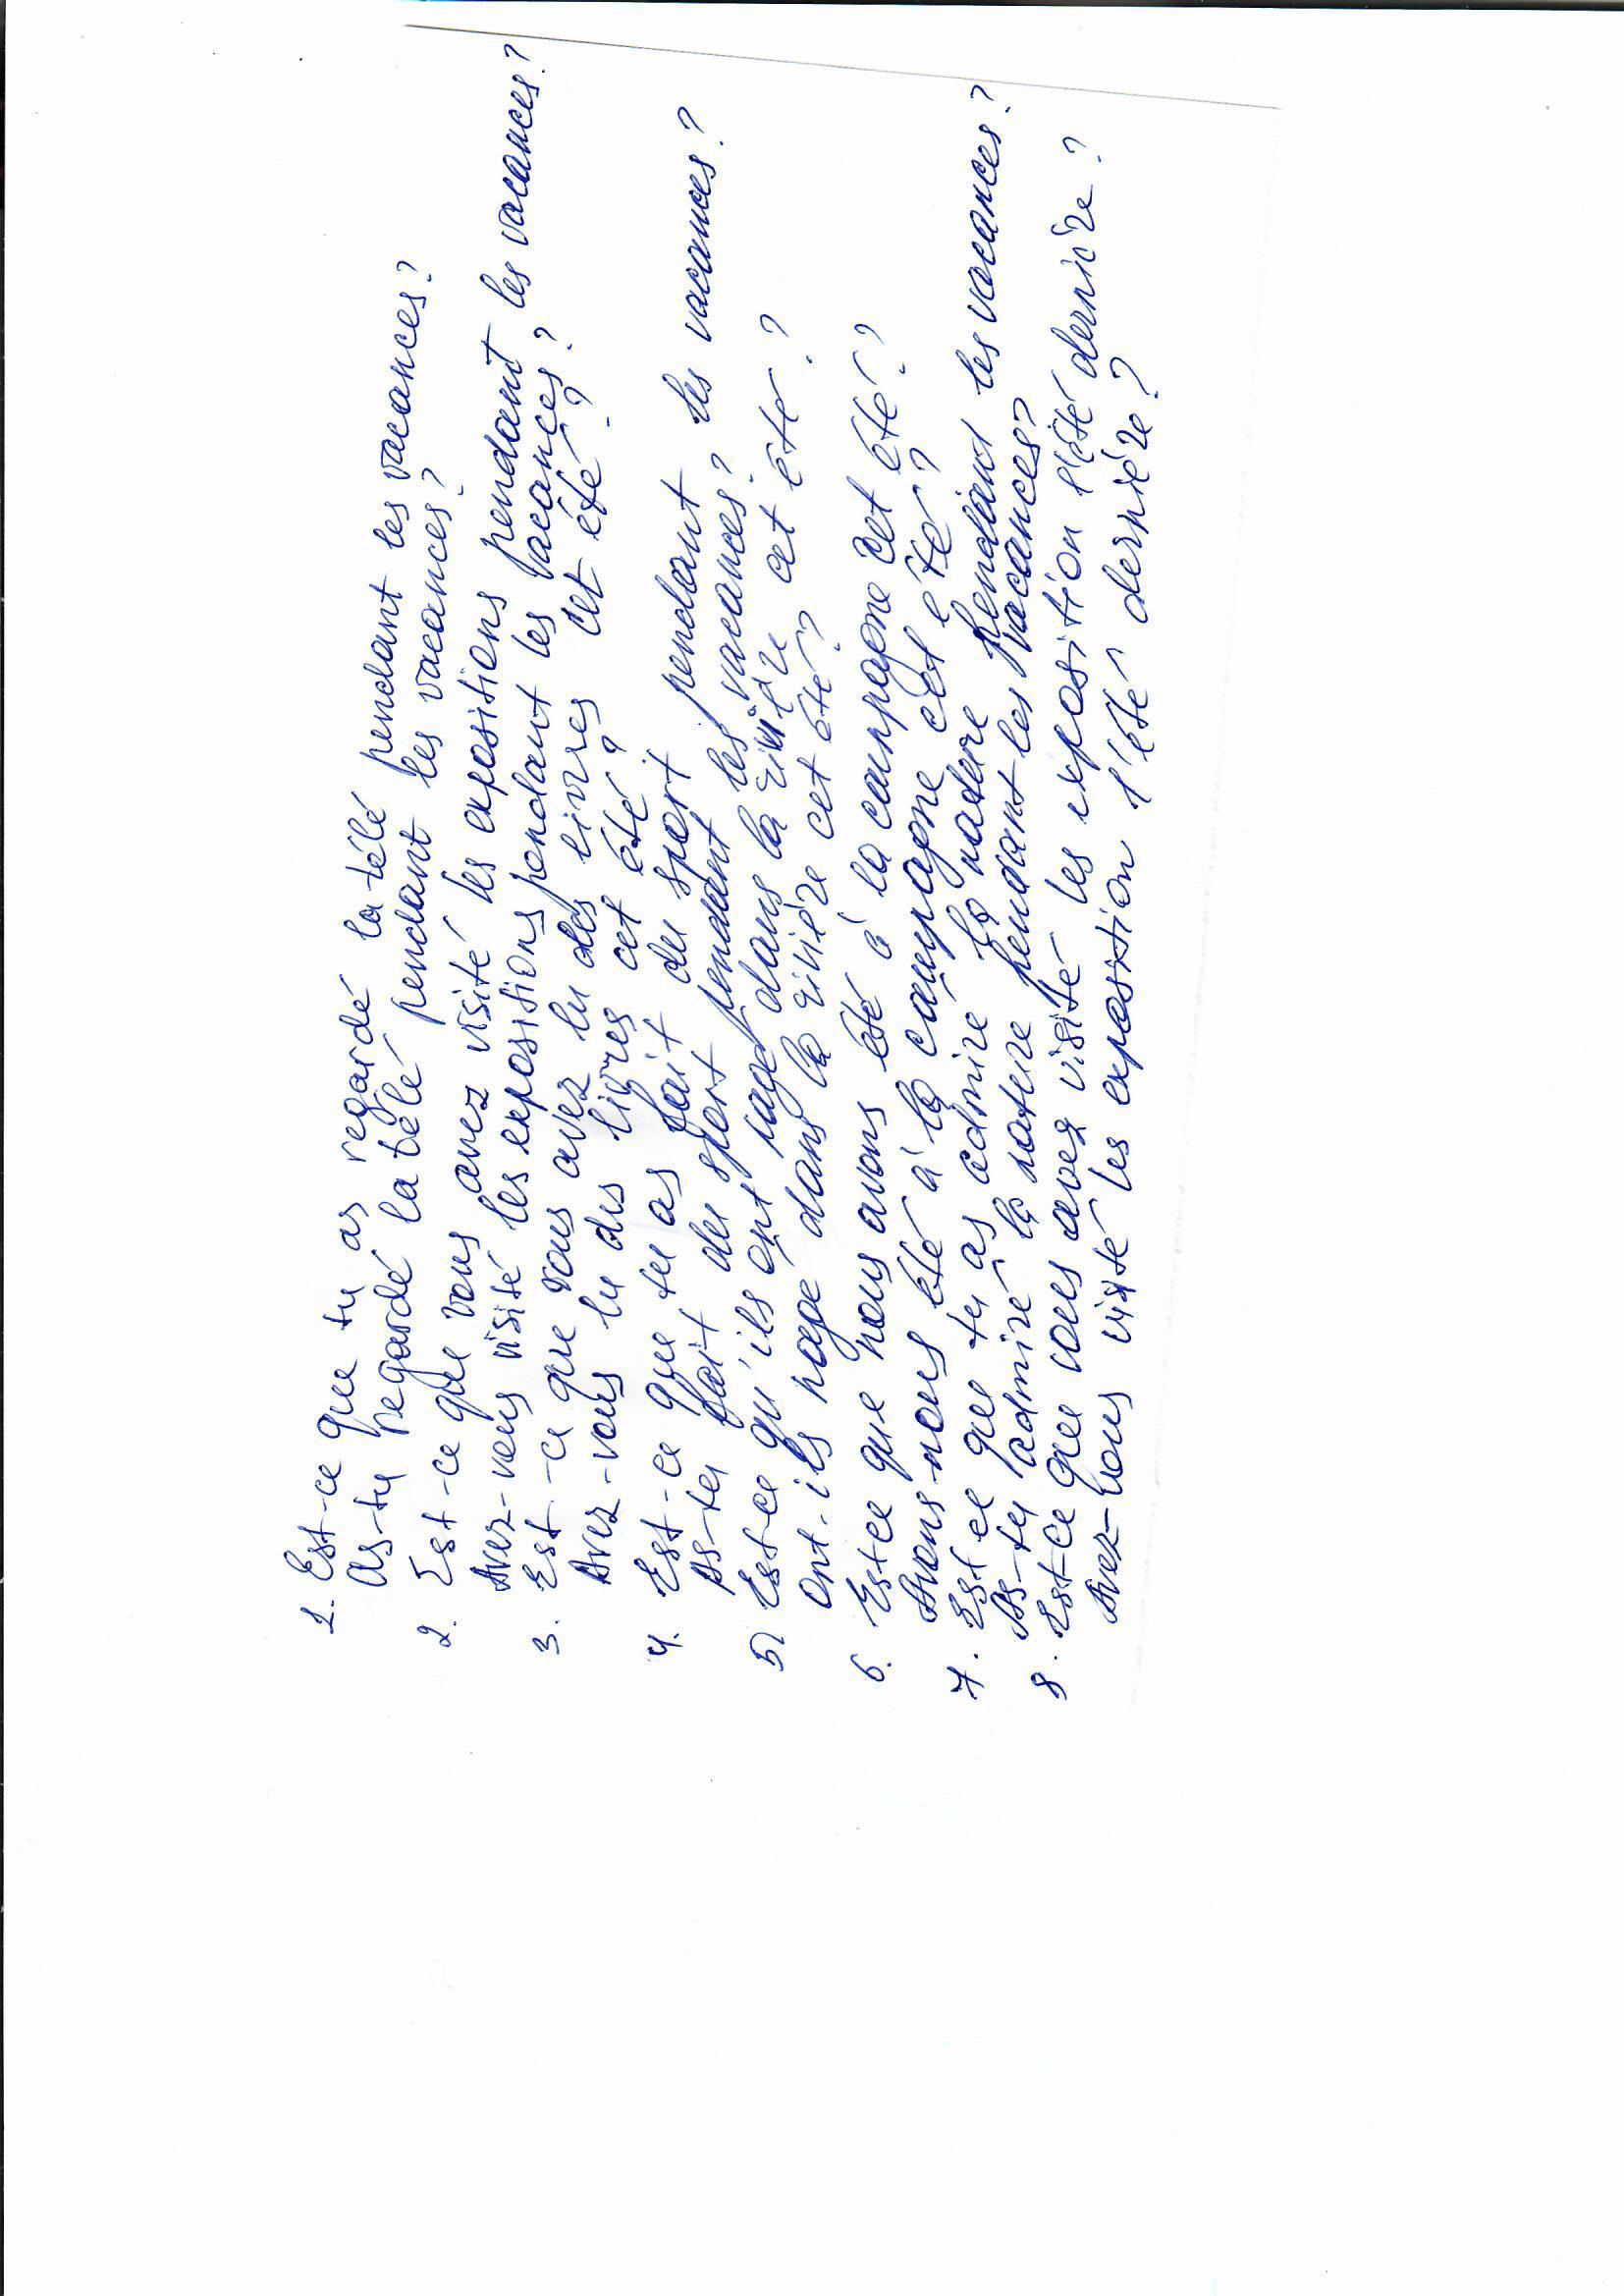 1. Est-ce que tu as regardé la télé pendant les vacances?
As-tu regardé la télé pendant les vacances?
2. Est-ce que vous avez visité les expositions pendant les vacances?
Avez-vous visité les expositions pendant les vacances?
3. Est-ce que vous avez lu des livres cet été?
Avez-vous lu des livres cet été?
4. Est-ce que tu as fait du sport pendant les vacances?
As-tu fait du sport pendant les vacances?
5) Est-ce qu'ils ont nagé dans la rivière cet éte?
Ont-ils nage dans la rivière cet été?
6. Est ce que nous avons été à la campagne cet été?
Avons-nous été à la campagne cet eté?
7. Est ce que tu as admiré la nature pendant les vacances?
As-tu admiré la nature pendant les vacances?
8. Est-ce que vous avez visité les exposition l'été dernière?
Avez-vous visté les exposition l'été dernière?